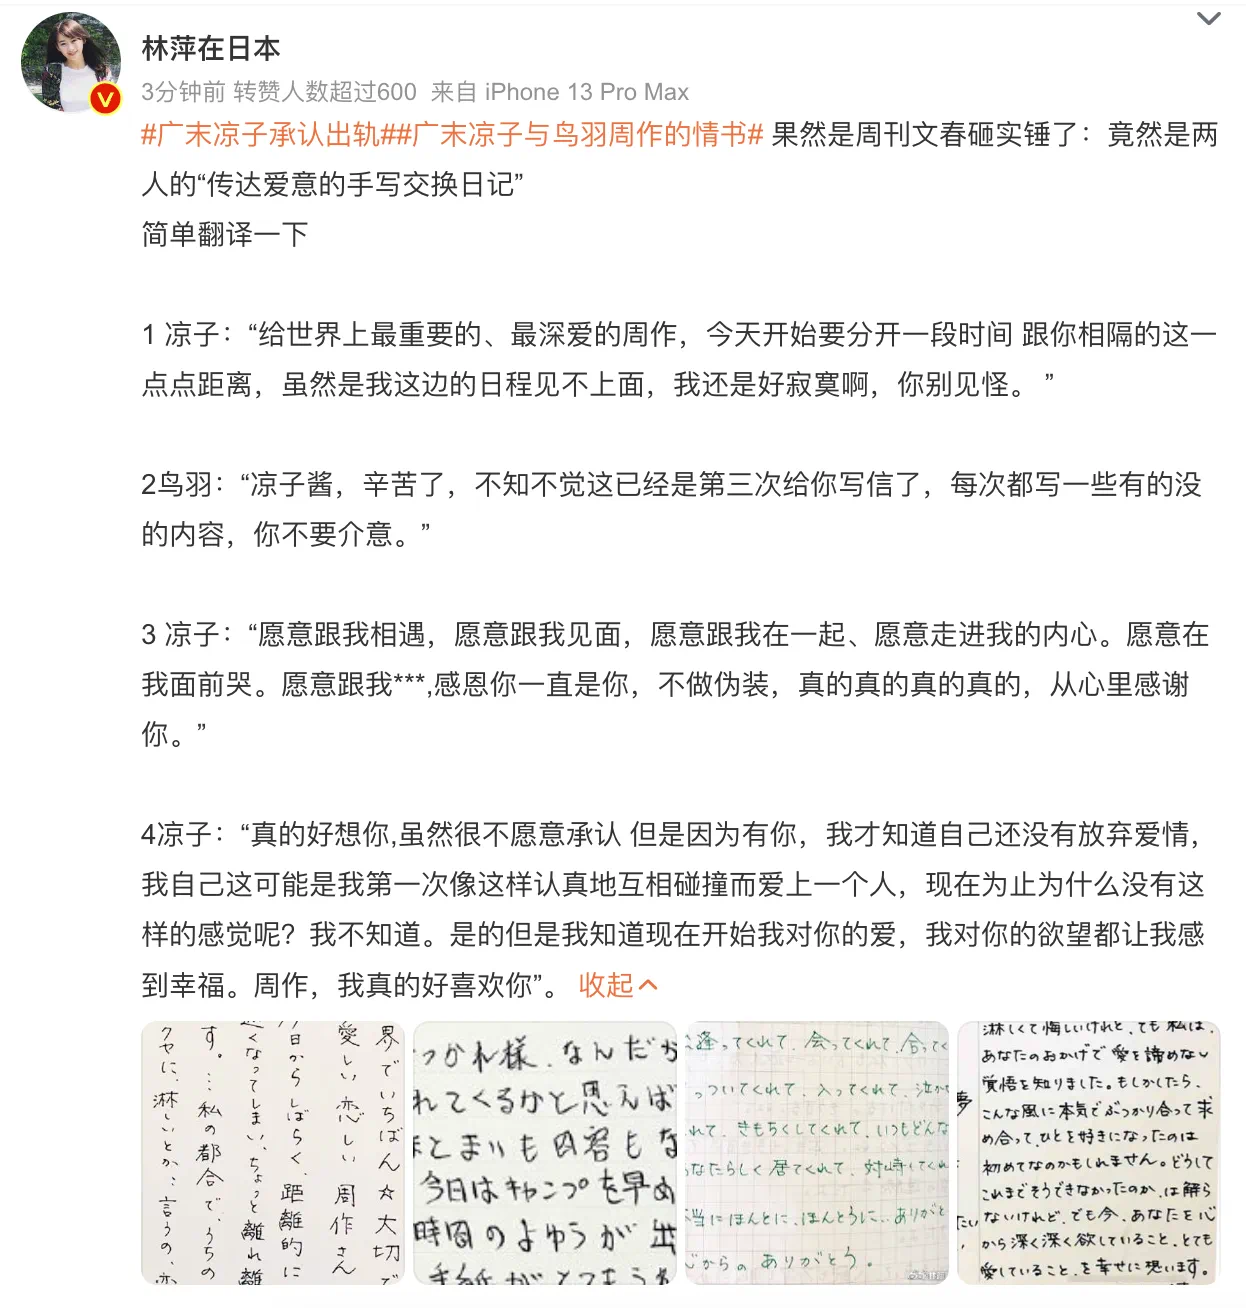 林萍在日本
3分钟前 转赞人数超过600 来自 iPhone 13 Pro Max
#广末凉子承认出轨##广末凉子与鸟羽周作的情书# 果然是周刊文春砸实锤了：竟然是两
人的“传达爱意的手写交换日记”
简单翻译一下
1 凉子：“给世界上最重要的、最深爱的周作，今天开始要分开一段时间 跟你相隔的这一
点点距离，虽然是我这边的日程见不上面，我还是好寂寞啊，你别见怪。”
2鸟羽：“凉子酱，辛苦了，不知不觉这已经是第三次给你写信了，每次都写一些有的没
的内容，你不要介意。”
3 凉子：“愿意跟我相遇，愿意跟我见面，愿意跟我在一起、愿意走进我的内心。愿意在
我面前哭。愿意跟我***,感恩你一直是你，不做伪装，真的真的真的真的，从心里感谢
你。”
4凉子：“真的好想你,虽然很不愿意承认 但是因为有你，我才知道自己还没有放弃爱情，
我自己这可能是我第一次像这样认真地互相碰撞而爱上一个人，现在为止为什么没有这
样的感觉呢？我不知道。是的但是我知道现在开始我对你的爱，我对你的欲望都让我感
到幸福。周作，我真的好喜欢你”。 收起
界でいちばん☆大切で
愛しい恋しい 周作さん
今日からしばらく、距離的に
近くなってしまい、ちょっと離れ離
す。…私の都合で、うちの
クヤに、淋しいとか、言うの、恋
つかれ様、なんだか
れてくるかと思えば
まとまりも内容もな
今日はキャンプを早め
時間のよゆうが出
手紙がとてもうれ
逢ってくれて、会ってくれて、合ってく
っついてくれて、入ってくれて、泣か
れて、きもちくしてくれて、いつもどんな
なたらしく居てくれて、対峙してくれ
当にほんとに、ほんとうに…ありがと
心からの ありがとう。
淋しくて悔しいけれど、でも私は、
あなたのおかげで愛を諦めない
覚悟を知りました。もしかしたら、
こんな風に本気でぶつかり合って求
め合って、ひとを好きになったのは
初めてなのかもしれません。どうして
これまでそうできなかったのか、は解ら
ないけれど、でも今、あなたを心
から深く深く欲していること、とても
愛していること、を幸せに思います。
夢
たい